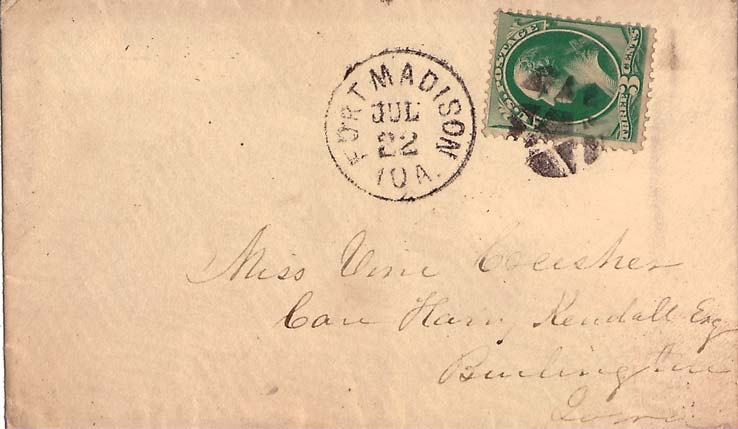 FORT MADISON
JUL
22
IOA.
POSTAGE
3
Miss
Care Harry Kendall Esq
Burlington
Iowa